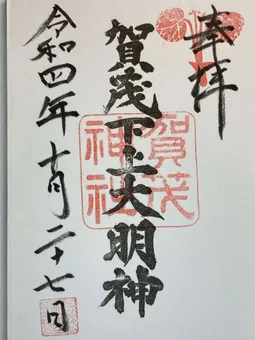 奉拝
賀茂下上大明神
賀茂
神社
令和四年十月二十七日